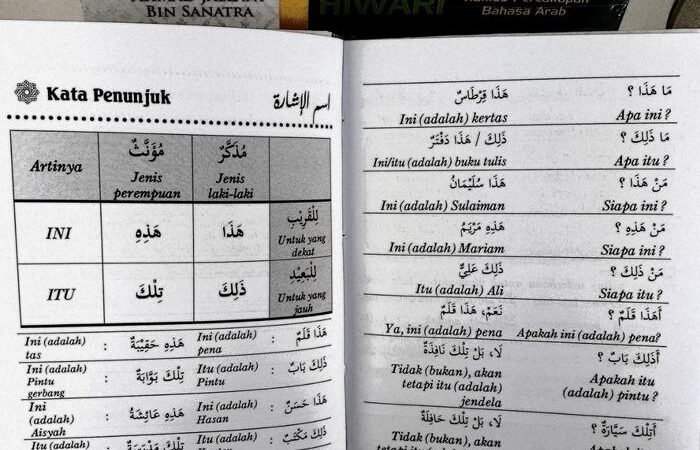 BIN SANATRA
HIWARI
Bahasa Arab
Kata Penunjuk
اسم الإشارة
Artinya
مُؤَنَّثٌ
Jenis
perempuan
مُذَكَّرٌ
Jenis
laki-laki
INI
هَذِهِ
هَذَا
لِلْقَرِيْبِ
Untuk yang
dekat
ITU
تِلْكَ
ذَلِكَ
لِلْبَعِيْدِ
Untuk yang
jauh
Ini (adalah) tas : هَذِهِ حَقِيْبَةٌ Ini (adalah) pena : هَذَا قَلَمٌ
Ini (adalah) Pintu gerbang : تِلْكَ بَوَّابَةٌ Itu (adalah) Pintu : ذَلِكَ بَابٌ
Ini (adalah) Aisyah : هَذِهِ عَائِشَةُ Ini (adalah) Hasan : هَذَا حَسَنٌ
Itu (adalah) : Itu (adalah) ذَلِكَ مَكْتَبٌ
هَذَا قِرْطَاسٌ مَا هَذَا ؟
Ini (adalah) kertas Apa ini ?
ذَلِكَ / هَذَا دَفْتَرٌ مَا ذَلِكَ ؟
Ini/itu (adalah) buku tulis Apa itu ?
هَذَا سُلَيْمَانُ مَنْ هَذَا ؟
Ini (adalah) Sulaiman Siapa ini ?
هَذِهِ مَرْيَمُ مَنْ هَذِهِ ؟
Ini (adalah) Mariam Siapa ini ?
ذَلِكَ عَلِيٌّ مَنْ ذَلِكَ ؟
Itu (adalah) Ali Siapa itu ?
نَعَمْ، هَذَا قَلَمٌ أَهَذَا قَلَمٌ ؟
Ya, ini (adalah) pena Apakah ini (adalah) pena?
لَا، بَلْ تِلْكَ نَافِذَةٌ أَذَلِكَ بَابٌ ؟
Tidak (bukan), akan Apakah itu
tetapi itu (adalah) (adalah) pintu ?
jendela
لَا، بَلْ تِلْكَ حَافِلَةٌ أَتِلْكَ سَيَّارَةٌ ؟
Tidak (bukan), akan Apakah itu
tetapi itu (adalah)